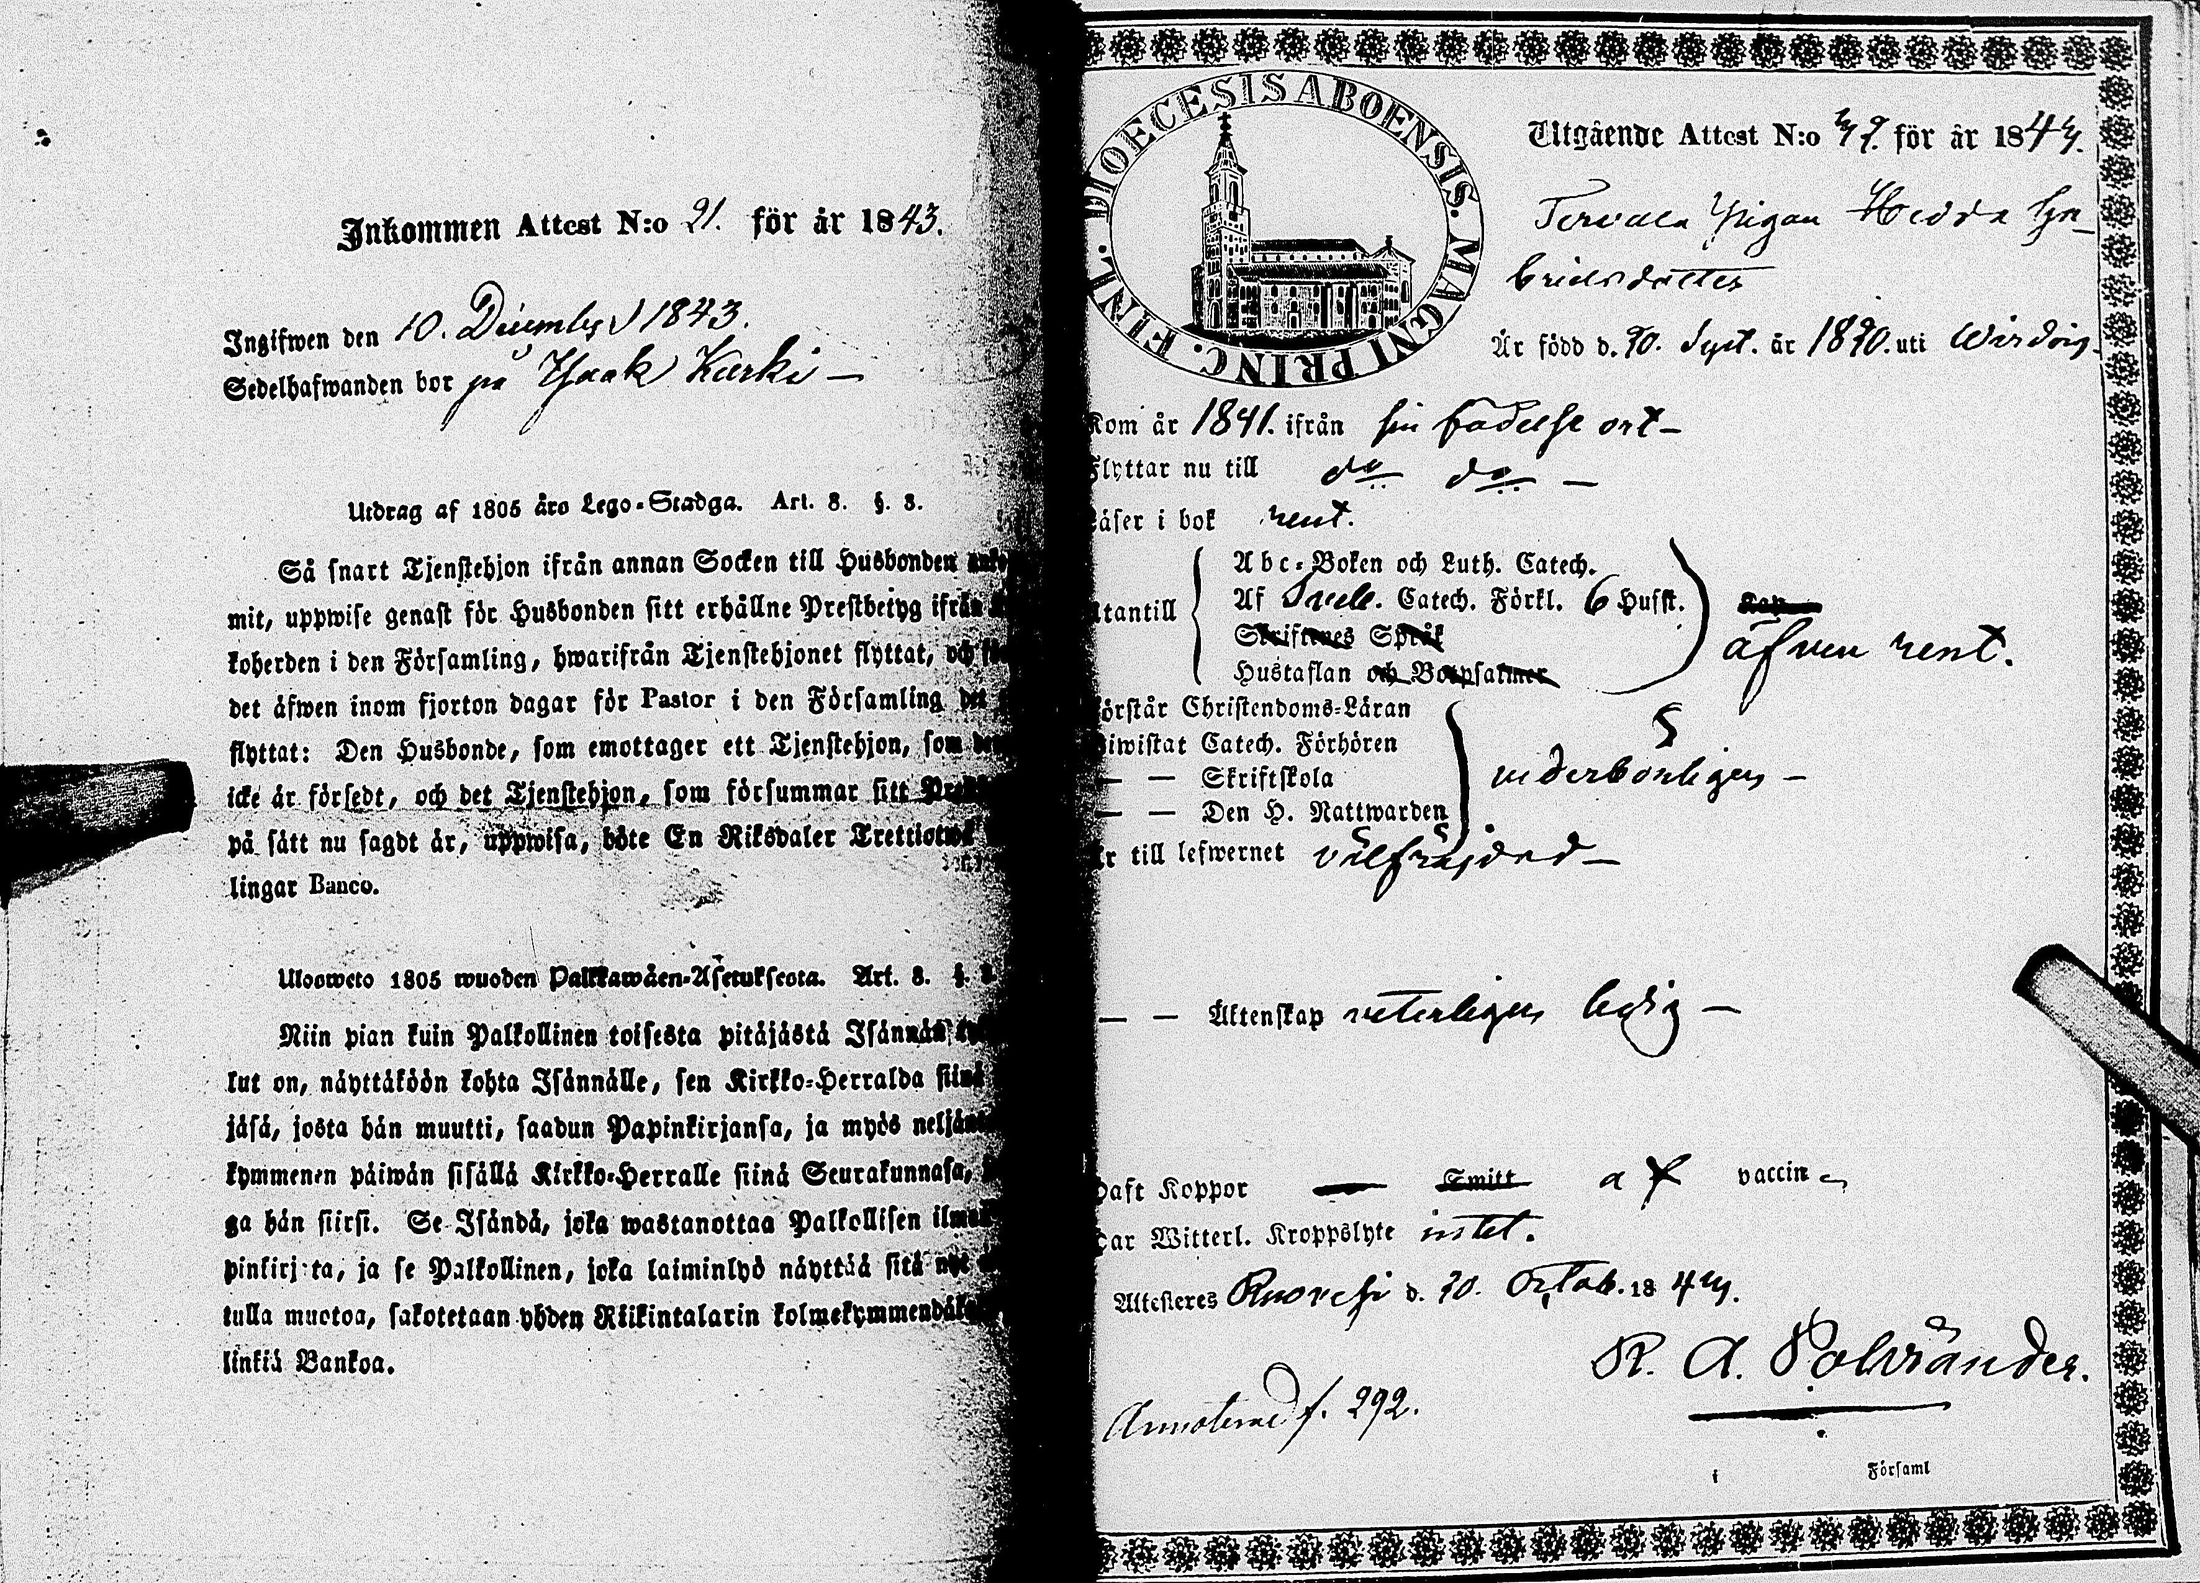 Inkommen Attest N:o 21. för år 1843.
Ingifwen den 10. December 1843.
Sedelhafwanden bor på Isaak Kärki —
Utdrag af 1805 åro Lego-Stadga. Art. 8. §. 8.
Så snart Tjenstehjon ifrån annan Socken till Husbonden
mit, uppwise genast för Husbonden sitt erhållne Prestbetyg ifrån
koherden i den Församling, hwarifrån Tjenstehjonet flyttat, och
det äfwen inom fjorton dagar för Pastor i den Församling det
flyttat: Den Husbonde, som emottager ett Tjenstehjon, som
icke är försedt, och det Tjenstehjon, som försummar sitt
på sätt nu sagdt är, uppwisa, böte En Riksdaler Trettiotwå
lingar Banco.
Uloswets 1805 wuoden Palkkawäen-Asetuksesta. Art. 8. §.
Niin pian kuin Palkollinen toisesta pitäjästä Isännän
kut on, näyttäköön kohta Isännälle, sen Kirkko-Herralda siinä
jäsä, josta hän muutti, saadun Papinkirjansa, ja myös neljän
kymmenen päiwän sisällä Kirkko-Herralle siinä Seurakunnasa,
ga hän siirsi. Se Isändä, joka wastanottaa Palkollisen ilman
pinkirjata, ja se Palkollinen, joka laiminlyö näyttää sitä nyt
tulla muotoa, sakotetaan yhden Riikintalarin kolmekymmendä
linkiä Bankoa.
DIOECESIS ABOENSIS. MAGNI PRINC. FINL.
Utgående Attest N:o för år 184
Pigan Hedda Ga-
brielsdotter
Är född d. Sept. år uti Wirdois
Kom år 1841. ifrån sin födelse ort —
Flyttar nu till do do —
Läser i bok rent.
Utantill
Abc-Boken och Luth. Catech.
Af Sveb. Catech. Förkl. 6 Hufst.
Skriftenes Språk
Hustaflan och Botpsalmer
äfven rent.
Förstår Christendoms-Läran
Biwistat Catech. Förhören
— — Skriftskola
— — Den H. Nattwarden
vederbörligen —
Är till lefwernet välfräjdad —
— — Äktenskap veterligen ledig —
Haft Koppor Smitt af vaccin
Har Witterl. Kroppslyte intet.
Attesteres Ruovesi d. Octob. 184
R. A. Polviander.
Annoterad f. 292.
i Församl